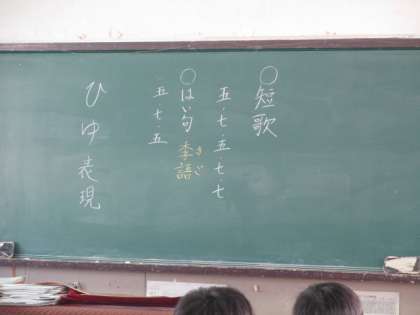 ○短歌
五・七・五・七・七
○はいく 季語
きご
五・七・五
ひゆ表現